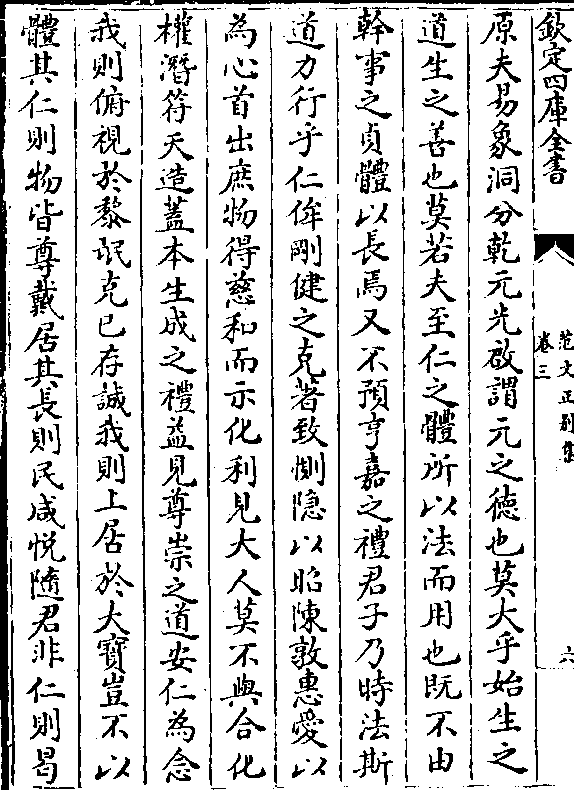 欽定四庫全書
范文正別集
卷三
六
原夫易象洞分乾元先啟謂元之徳也莫大乎始生之
道生之善也莫若夫至仁之體所以法而用也既不由
幹事之貞體以長焉又不預亨嘉之禮君子乃時法斯
道力行乎仁侔剛健之克著致惻隐以昭陳敦惠愛以
為心首出庶物得慈和而示化利見大人莫不與合化
權潛符天造蓋本生成之禮益見尊崇之道安仁為念
我則俯視於黎氓克已存誠我則上居於大寳豈不以
體其仁則物皆尊戴居其長則民咸悦隨君非仁則曷